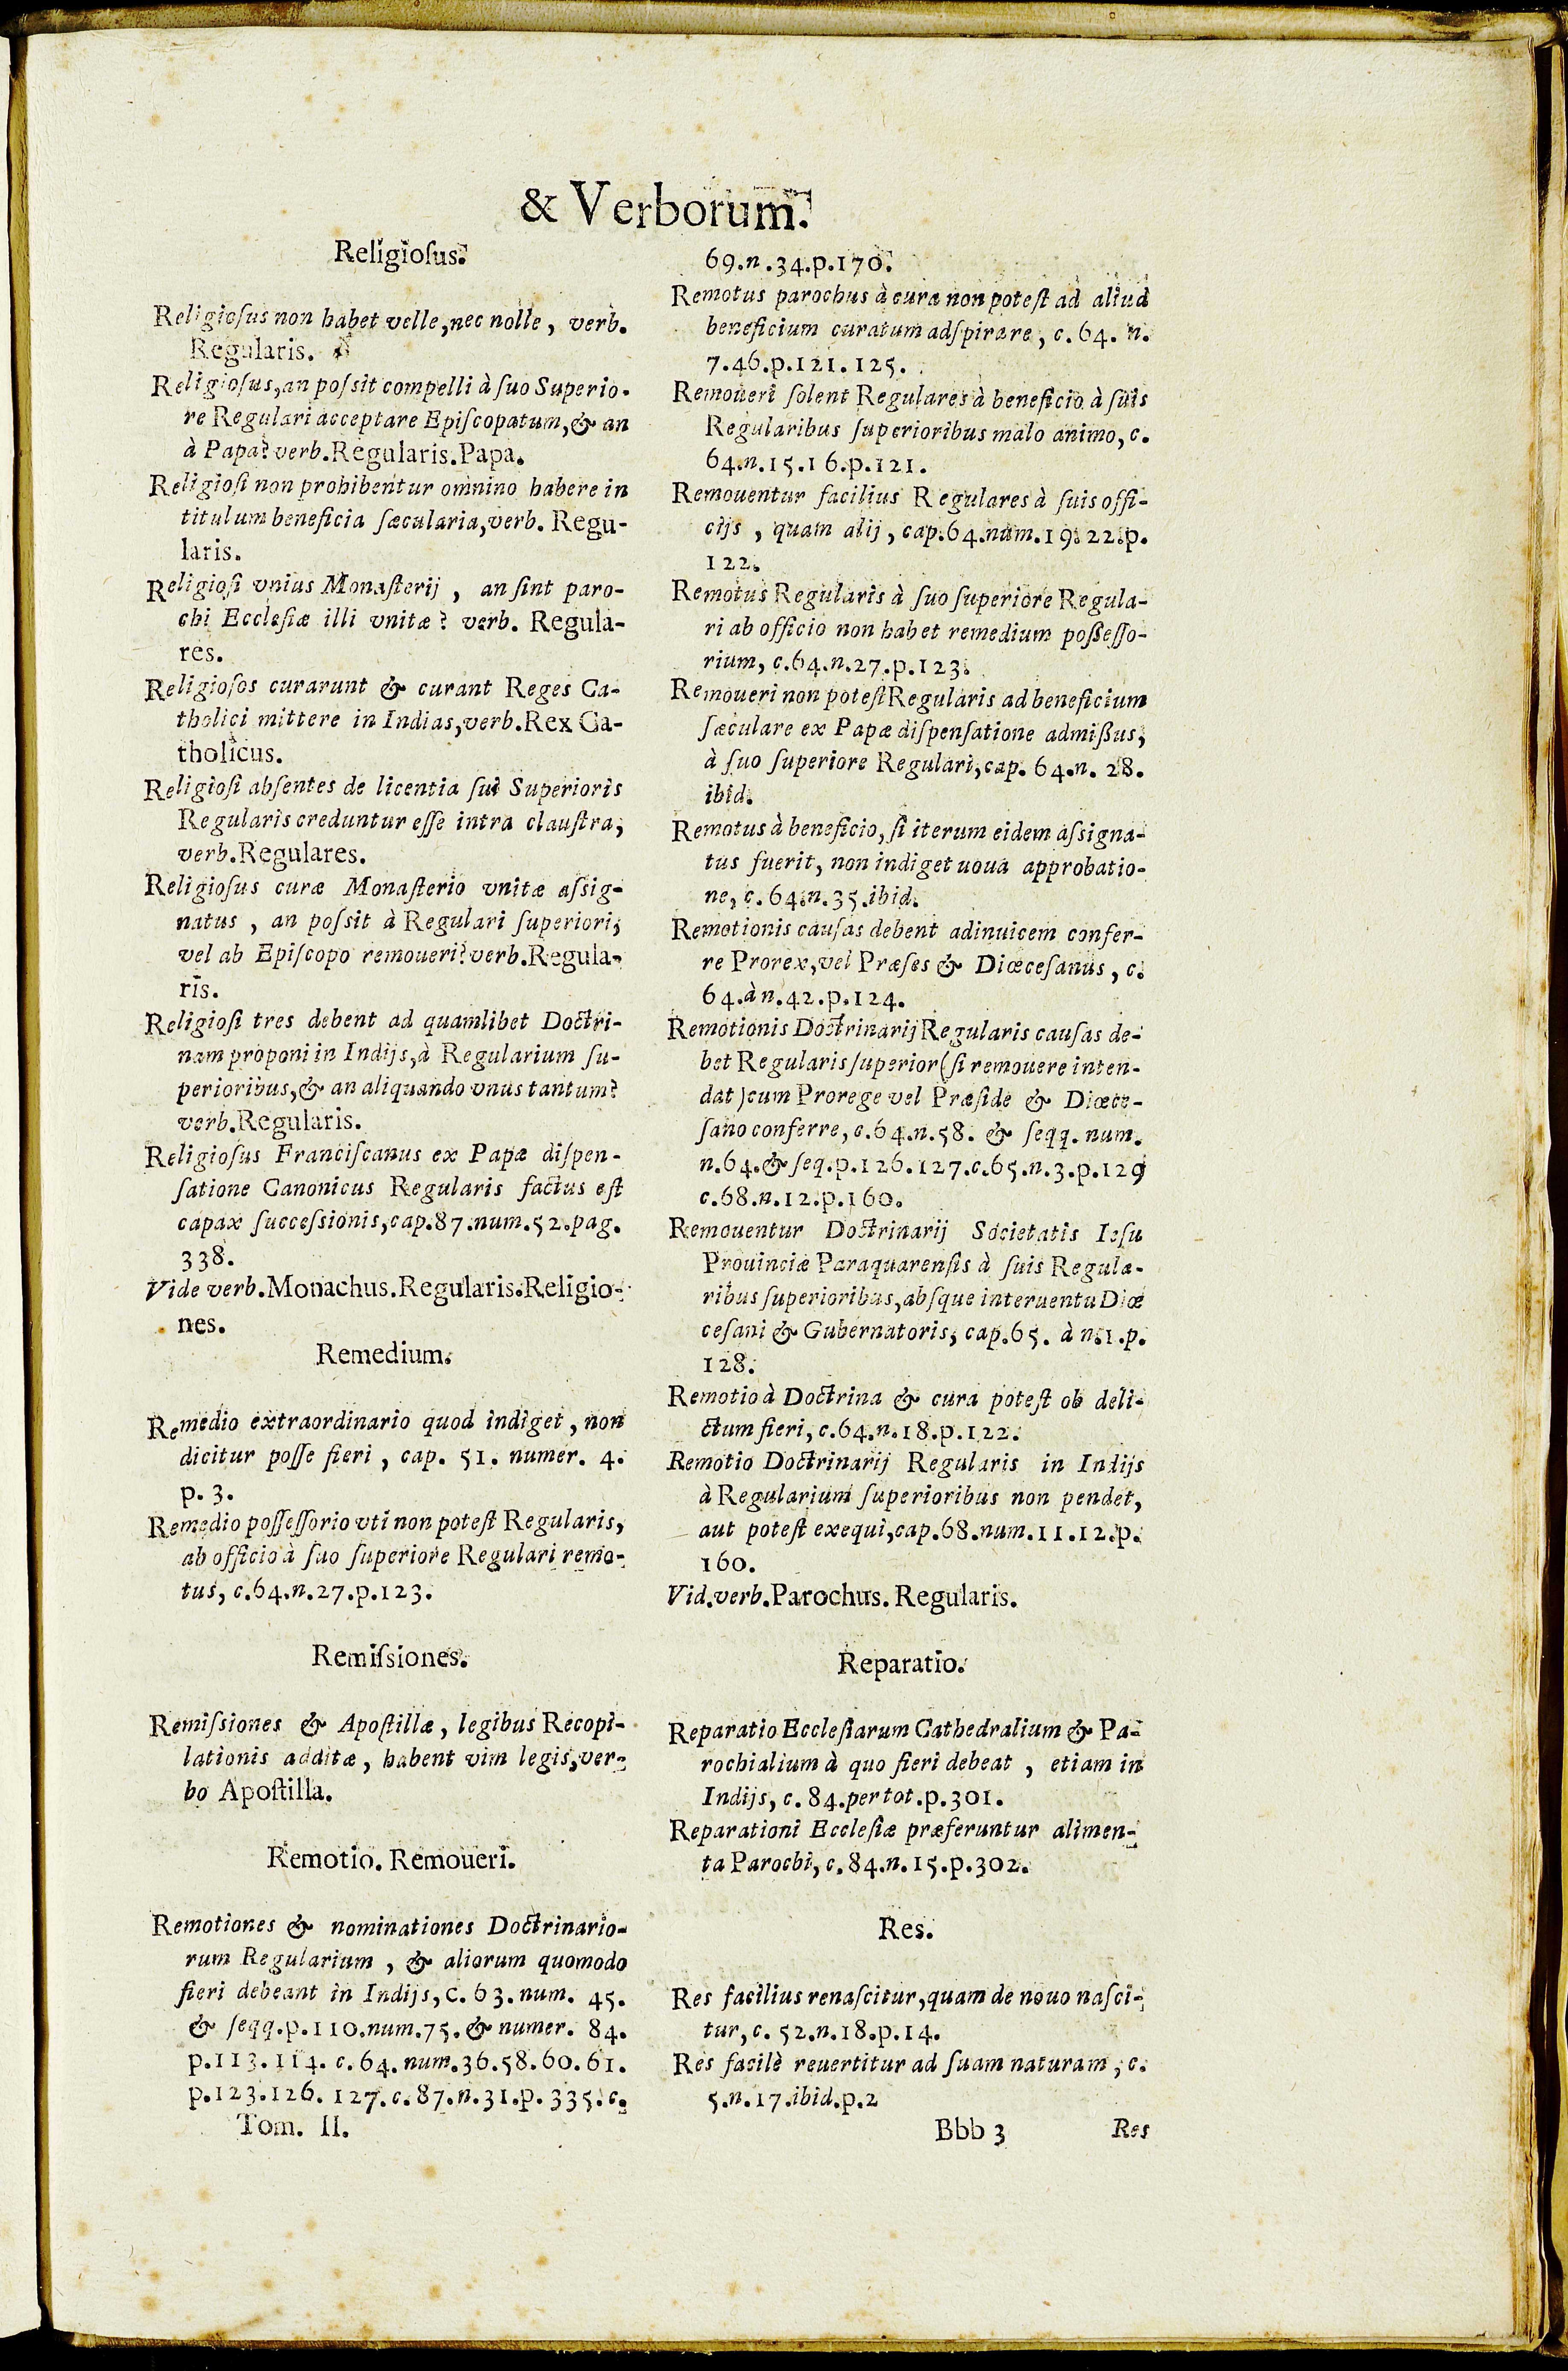 & Verborum.
Religioſus.
Religioſus non habet velle, nec nolle, verb.
Regularis.
Religioſus, an poſsit compelli à ſuo Superio-
re Regulari acceptare Epiſcopatum, & an
à Papa? verb. Regularis. Papa.
Religioſi non prohibentur omnino habere in
titulum beneficia ſæcularia, verb. Regu-
laris.
Religioſi vnius Monaſterij, an ſint paro-
chi Eccleſiæ illi vnitæ? verb. Regula-
res.
Religioſos curarunt & curant Reges Ca-
tholici mittere in Indias, verb. Rex Ca-
tholicus.
Religioſi abſentes de licentia ſui Superioris
Regularis creduntur eſſe intra clauſtra,
verb. Regulares.
Religioſus curæ Monaſterio vnitæ aſsig-
natus, an poſsit à Regulari ſuperiori,
vel ab Epiſcopo remoueri? verb. Regula-
ris.
Religioſi tres debent ad quamlibet Doctri-
nam proponi in Indijs, à Regularium ſu-
perioribus, & an aliquando vnus tantum?
verb. Regularis.
Religioſus Franciſcanus ex Papæ diſpen-
ſatione Canonicus Regularis factus eſt
capax ſucceſsionis, cap. 87. num. 52. pag.
338.
Vide verb. Monachus. Regularis. Religio-
nes.
Remedium.
Remedio extraordinario quod indiget, non
dicitur poſſe fieri, cap. 51. numer. 4.
p. 3.
Remedio poſſeſſorio vti non poteſt Regularis,
ab officio à ſuo ſuperiore Regulari remo-
tus, c. 64. n. 27. p. 123.
Remiſsiones.
Remiſsiones & Apoſtillæ, legibus Recopi-
lationis additæ, habent vim legis, ver-
bo Apoſtilla.
Remotio. Remoueri.
Remotiones & nominationes Doctrinario-
rum Regularium, & aliorum quomodo
fieri debeant in Indijs, c. 63. num. 45.
& ſeqq. p. 110. num. 75. & numer. 84.
p. 113. 114. c. 64. num. 36. 58. 60. 61.
p. 123. 126. 127. c. 87. n. 31. p. 335. c.
Tom. II.
69. n. 34. p. 170.
Remotus parochus à cura non poteſt ad aliud
beneficium curatum adſpirare, c. 64. n.
7. 46. p. 121. 125.
Remoueri ſolent Regulares à beneficio à ſuis
Regularibus ſuperioribus malo animo, c.
64. n. 15. 16. p. 121.
Remouentur facilius Regulares à ſuis offi-
cijs, quam alij, cap. 64. num. 19. 22. p.
122.
Remotus Regularis à ſuo ſuperiore Regula-
ri ab officio non habet remedium poßeſſo-
rium, c. 64. n. 27. p. 123.
Remoueri non poteſt Regularis ad beneficium
ſæculare ex Papæ diſpenſatione admißus,
à ſuo ſuperiore Regulari, cap. 64. n. 28.
ibid.
Remotus à beneficio, ſi iterum eidem aſsigna-
tus fuerit, non indiget uoua approbatio-
ne, c. 64. n. 35. ibid.
Remotionis cauſas debent adinuicem confer-
re Prorex, vel Præſes & Diœceſanus, c.
64. à n. 42. p. 124.
Remotionis Doctrinarij Regularis cauſas de-
bet Regularis ſuperior (ſi remouere inten-
dat) cum Prorege vel Præſide & Diœce-
ſano conferre, c. 64. n. 58. & ſeqq. num.
n. 64. & ſeq. p. 126. 127. c. 65. n. 3. p. 129
c. 68. n. 12. p. 160.
Remouentur Doctrinarij Societatis Ieſu
Prouinciæ Paraquarenſis à ſuis Regula-
ribus ſuperioribus, abſque interuentu Diœ
ceſani & Gubernatoris, cap. 65. à n. 1. p.
128.
Remotio à Doctrina & cura poteſt ob deli-
ctum fieri, c. 64. n. 18. p. 122.
Remotio Doctrinarij Regularis in Indijs
à Regularium ſuperioribus non pendet,
aut poteſt exequi, cap. 68. num. 11. 12. p.
160.
Vid. verb. Parochus. Regularis.
Reparatio.
Reparatio Eccleſiarum Cathedralium & Pa-
rochialium à quo fieri debeat, etiam in
Indijs, c. 84. per tot. p. 301.
Reparationi Eccleſiæ præferuntur alimen-
ta Parochi, c. 84. n. 15. p. 302.
Res.
Res facilius renaſcitur, quam de nouo naſci-
tur, c. 52. n. 18. p. 14.
Res facilè reuertitur ad ſuam naturam, c.
5. n. 17. ibid. p. 2
Bbb 3 Res